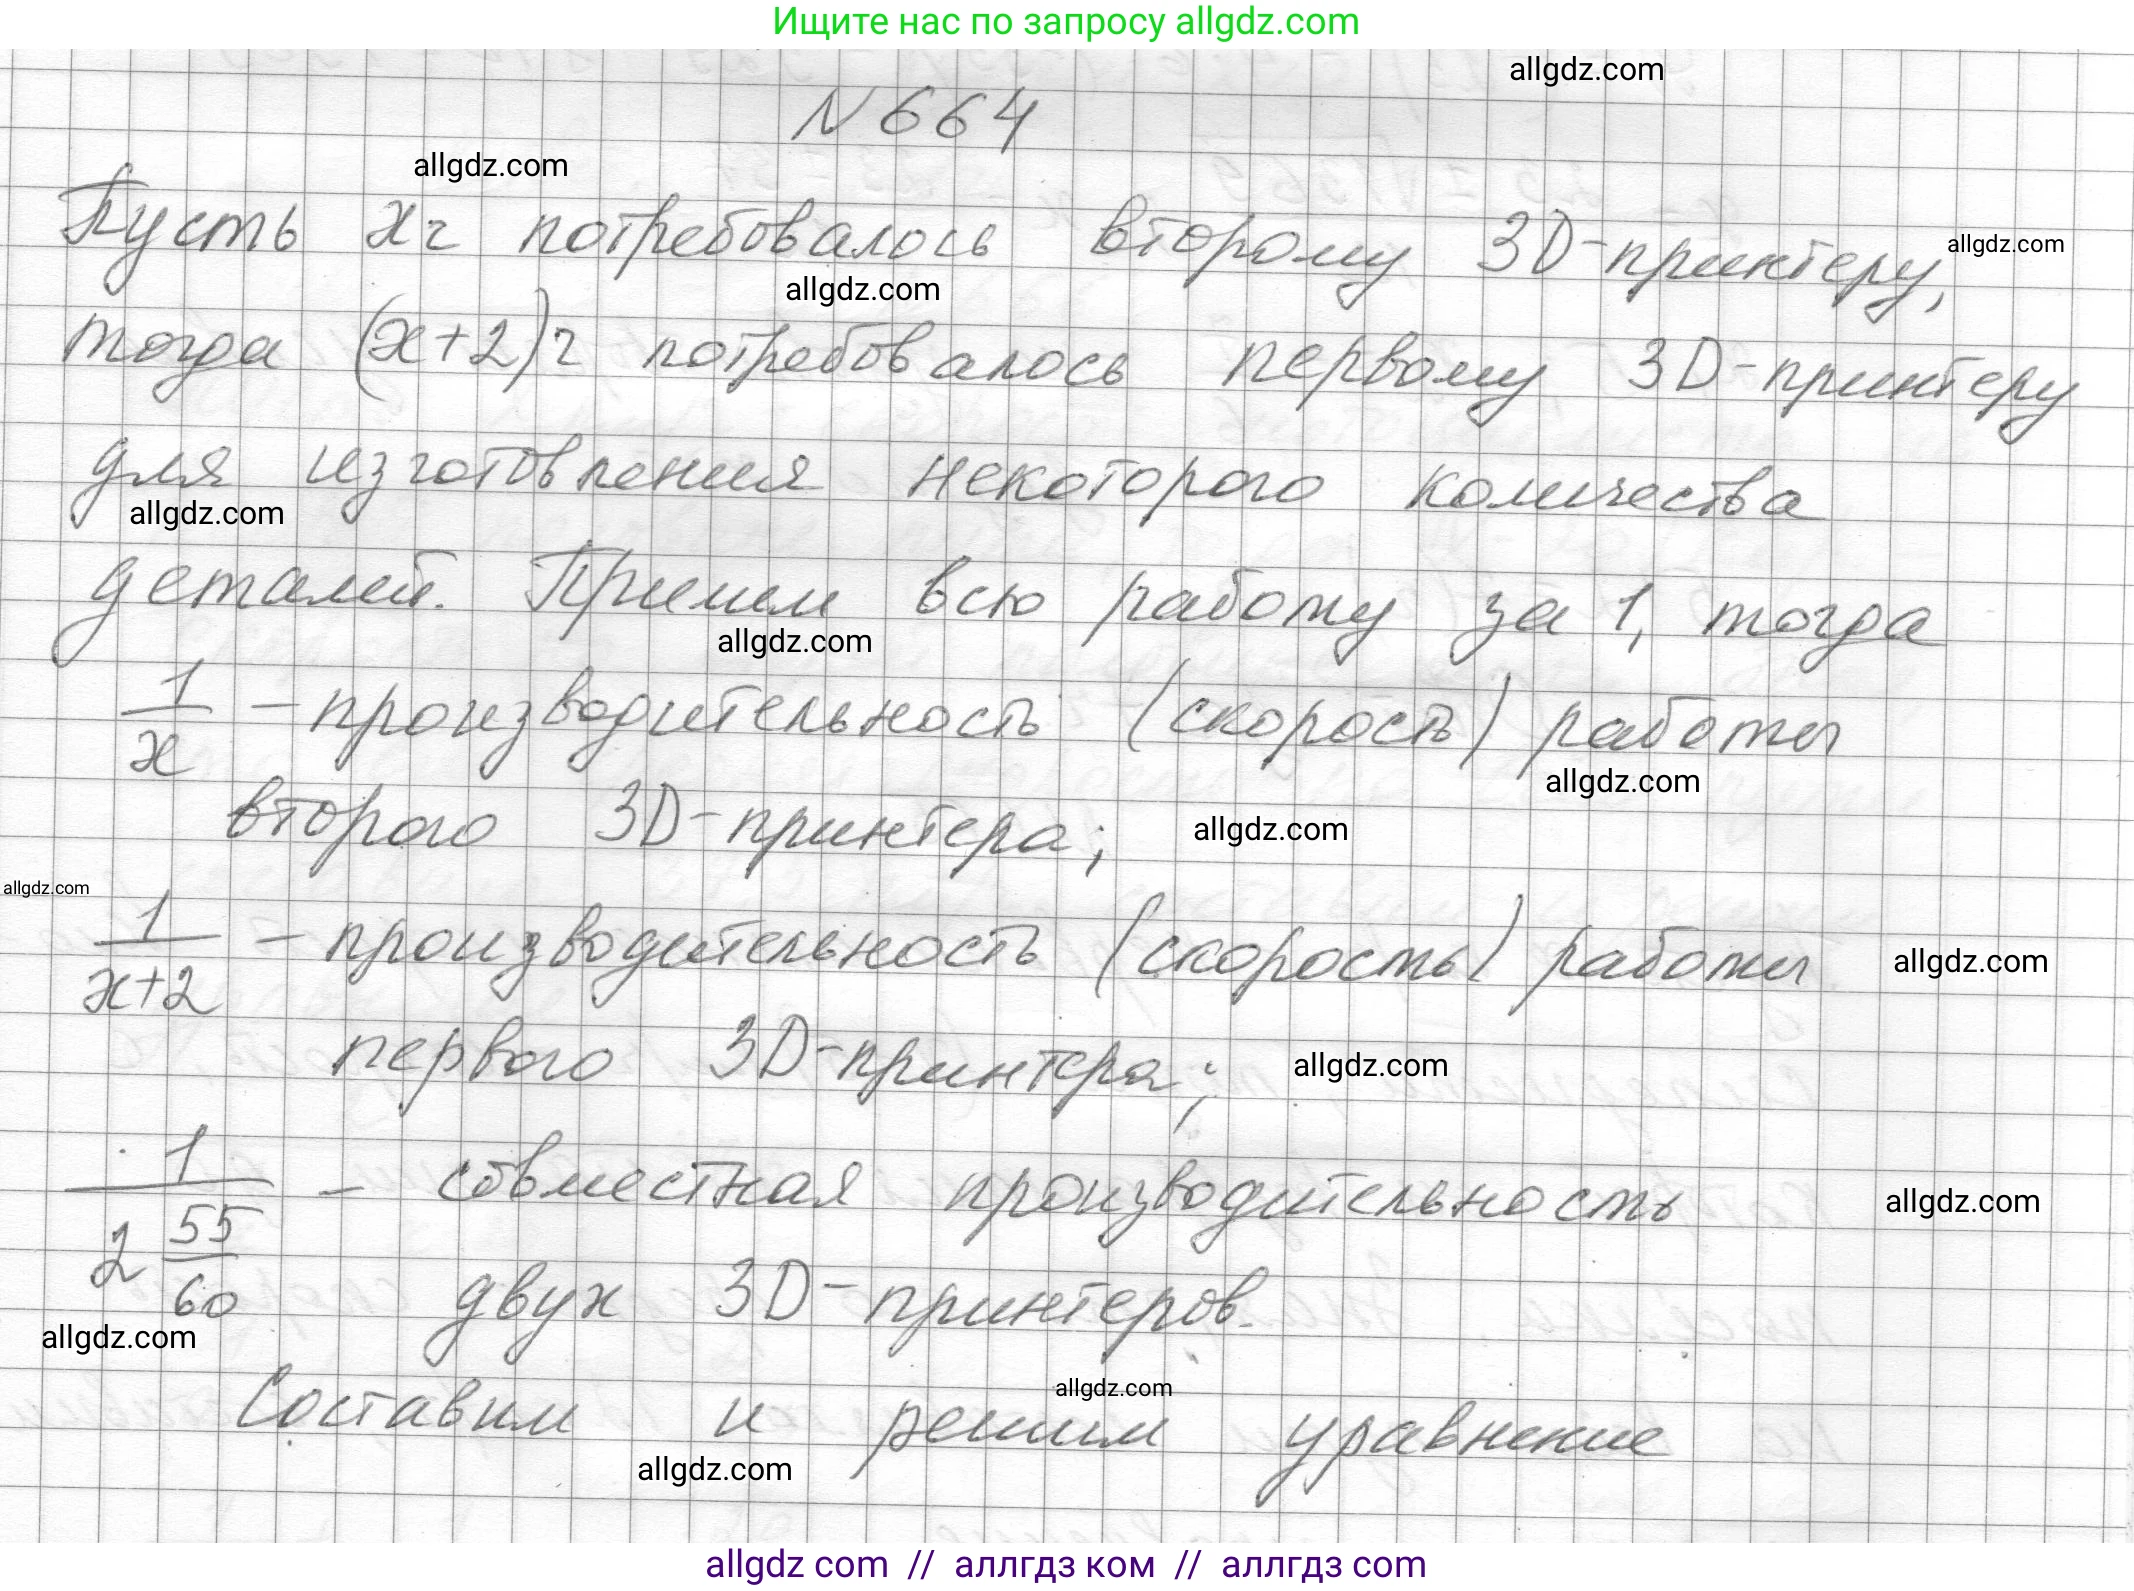 Ищите нас по запросу allgdz.com
allgdz.com
N 664
allgdz.com
Пусть x ч потребовалось второму 3D-принтеру,
allgdz.com
allgdz.com
тогда (x+2) ч потребовалось первому 3D-принтеру
для изготовления некоторого количества
allgdz.com
деталей. Примем всю работу за 1, тогда
allgdz.com
1/x – производительность (скорость) работы
allgdz.com
второго 3D-принтера;
allgdz.com
allgdz.com
1/(x+2) – производительность (скорость) работы
allgdz.com
первого 3D-принтера;
allgdz.com
1/(2 55/60) – совместная производительность
allgdz.com
двух 3D-принтеров.
allgdz.com
allgdz.com
Составим и решим уравнение
allgdz.com
allgdz com // аллгдз ком // аллгдз com